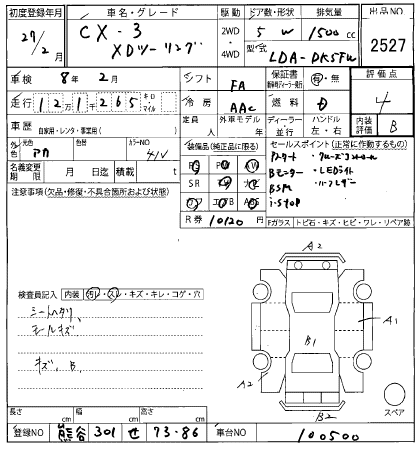 初度登録年月 車名・グレード 駆動 ドア数・形状 排気量 出品NO
27/2月 CX-3 XDツーリング 2WD・4WD 5 W 1500cc 2527
型式 LDA-DK5FW
車検 8年2月 シフト FA 保証書 有・無 評価点
走行 121265 キロ・マイル 冷房 AAC 燃料 D 4
車歴 自家用・レンタ・事業用( ) 定員 人 外車モデル ディーラー・並行 ハンドル 左・右 内装評価 B
外色 元色 アカ 色替 カラーNO 41V 装備品(純正品に限る) セールスポイント(正常に作動するもの)
名義変更期限 月 日迄 積載 t
注意事項(欠品・修復・不具合箇所および状態) SR
LEDライト
BSM
i-STOP
R券 10120円 Fガラス トビ石・キズ・ヒビ・ワレ・リペア跡
A2
検査員記入 内装 汚レ・スレ・キズ・キレ・コゲ・穴
シートヘタリ
モールキズ
キズ、B
A1
B1
A2
B2
スペア
長さ cm 幅 cm 高さ cm
登録NO 熊谷 301 せ 73-86 車台NO 100500